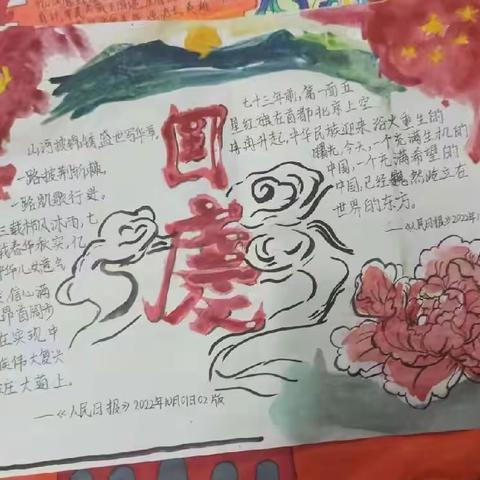 国庆
山河披锦绣,盛世写华章,
一路披荆斩棘,
一路凯歌行进。
三载栉风沐雨,七
载春华秋实,亿
华儿女道气
信心满
昂首阔步
在实现中
族伟大复兴
征大道上。
——《人民日报》2022年10月01日02版
七十三年前,第一面五
星红旗在首都北京上空
冉冉升起,中华民族迎来浴火重生的
曙光,今天,一个充满生机的
中国,一个充满希望的
中国,已经巍然屹立在
世界的东方。
——《人民日报》2022年